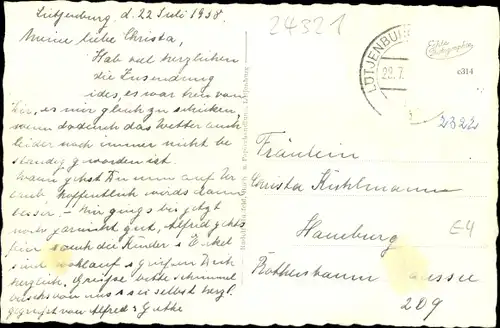 Lütjenburg, d. 22 Juli 1958.
Meine liebe Christa,
Hab viel herzlichen
die Zusendung
ides, es war
dir, es mir gleich zu schicken,
wenn dadurch das Wetter auch
leider noch immer nicht be
ständig geworden ist.
Wann gehst Du nun auf Ur
Hoffentlich wirds dann
besser. – Mir gings bis jetzt
noch garnicht gut, Alfred gehts
fein, auch die Kinder & Enkel
sind wohlauf & grüßen Dich
herzlich. Grüße bitte
von uns & sei selbst herzl.
gegrüßt von Alfred &
24321
LÜTJENBURG
22.7.
Echte Photographie
c314
2322
Fräulein
Christa Kuhlmann
Hamburg
E4
Rothenbaum
209